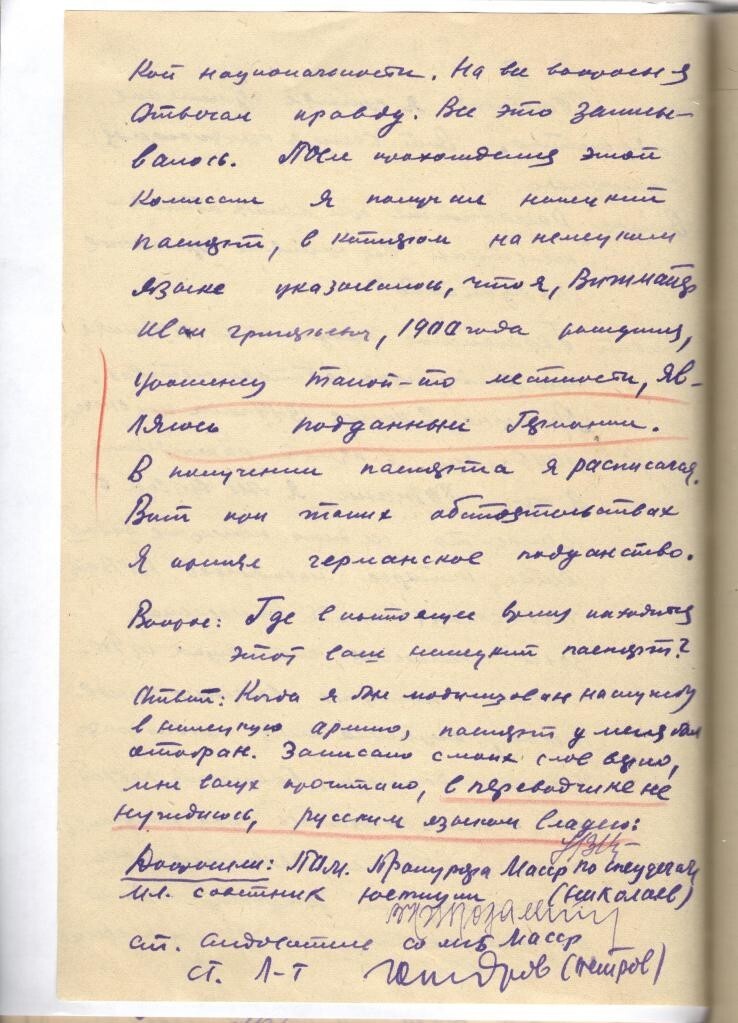 кой национальности. На все вопросы я
отвечал правду. Все это записы-
валось. После прохождения этой
комиссии я получил немецкий
паспорт, в котором на немецком
языке указывалось, что я,
Иван Григорьевич, 1900 года рождения,
уроженец такой-то местности, яв-
ляюсь подданным Германии.
В получении паспорта я расписался.
Вот при таких обстоятельствах
я принял германское подданство.
Вопрос: Где в настоящее время находится
этот ваш немецкий паспорт?
Ответ: Когда я был мобилизован на службу
в немецкую армию, паспорт у меня был
отобран. Записано с моих слов верно,
мне вслух прочитано, в переводчике не
нуждаюсь, русским языком владею:
Допросили: Пом. Прокурора МАССР по спецделам
мл. советник юстиции (Николаев)
ст. следователь МАССР
ст. л-т (Петров)